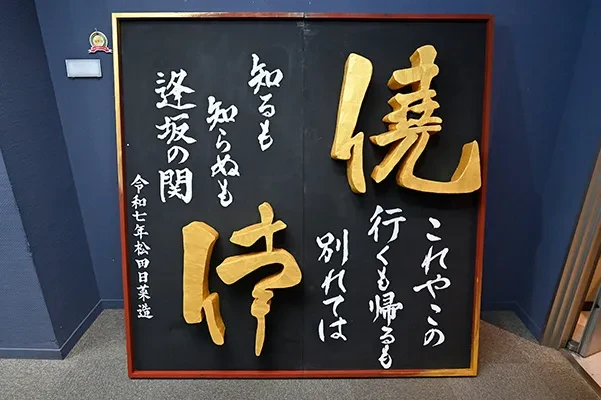 僥
倖
これやこの
行くも帰るも
別れては
知るも
知らぬも
逢坂の関
令和七年松田日菜造